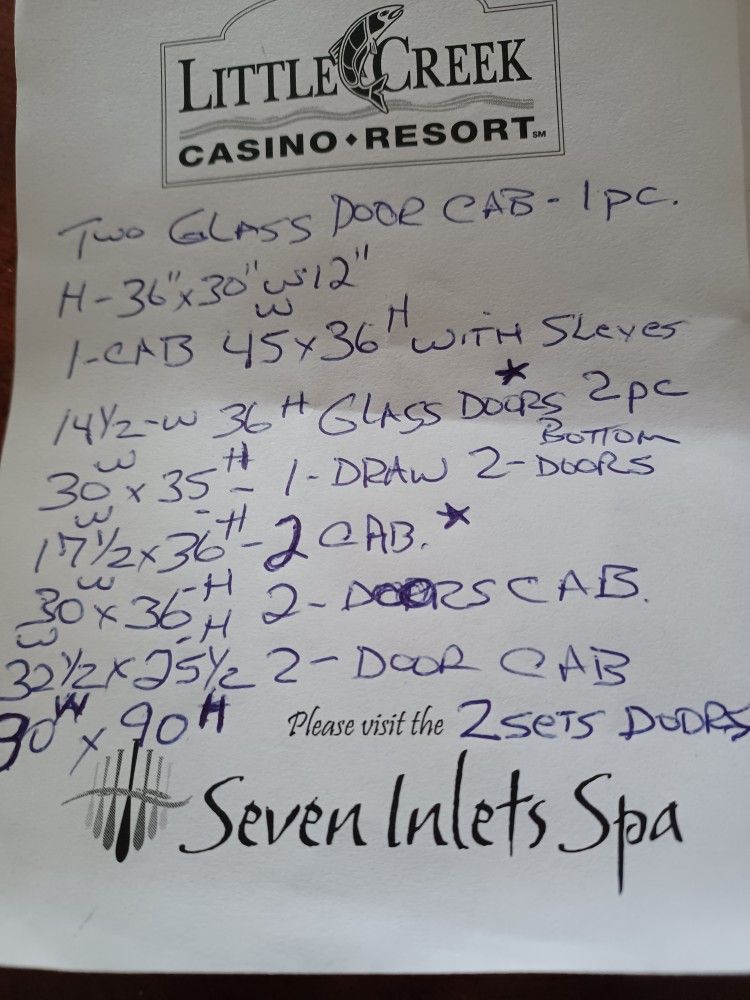 LITTLE CREEK
CASINO • RESORT SM
TWO GLASS DOOR CAB - 1 PC.
H-36"x30"W 12"
1-CAB 45W x 36H WITH SLEVES
14 1/2-W 36H GLASS DOORS* 2 PC
30W x 35H - 1-DRAW BOTTOM 2-DOORS
17 1/2W x 36H - 2 CAB.*
30W x 36-H 2-DOORS CAB.
32 1/2W x 25 1/2-H 2-DOOR CAB
30W x 90H Please visit the 2 SETS DOORS
Seven Inlets Spa